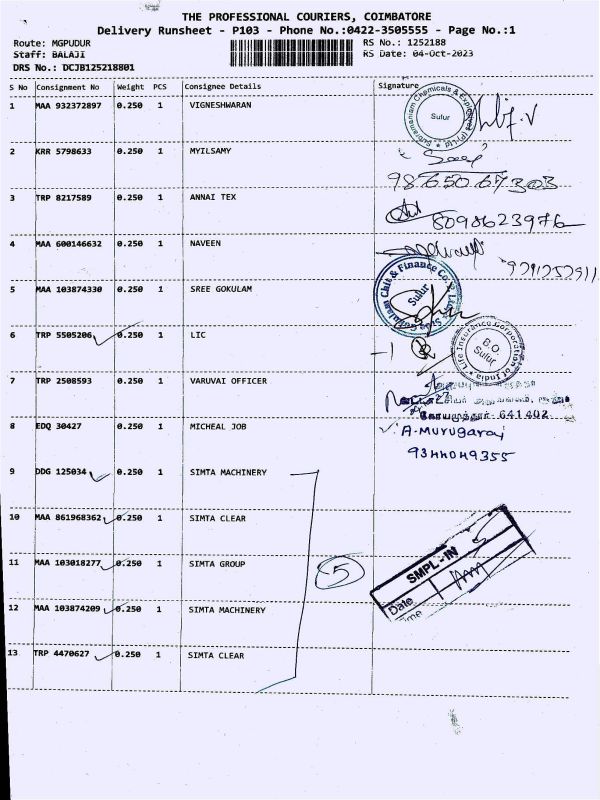 THE PROFESSIONAL COURIERS, COIMBATORE
Delivery Runsheet - P103 - Phone No.:0422-3505555 - Page No.:1
Route: MGPUDUR
Staff: BALAJI
DRS No.: DCJB125218801
RS No.: 1252188
RS Date: 04-Oct-2023
S No Consignment No Weight PCS Consignee Details Signature
1 MAA 932372897 0.250 1 VIGNESHWARAN
Subramaniam Chemicals & Explosives (P) Ltd
Sulur
2 KRR 5798633 0.250 1 MYILSAMY
9865067303
3 TRP 8217589 0.250 1 ANNAI TEX
8098623976
4 MAA 600146632 0.250 1 NAVEEN
5 MAA 103874330 0.250 1 SREE GOKULAM
Sree Gokulam Chit & Finance Co.(P) Ltd.
Sulur
6 TRP 5505206 0.250 1 LIC
Life Insurance Corporation of India
B.O.
Sulur
7 TRP 2508593 0.250 1 VARUVAI OFFICER
கோயமுத்தூர் - 641402
8 EDQ 30427 0.250 1 MICHEAL JOB
A-Murugaraj
9344049355
9 DDG 125034 0.250 1 SIMTA MACHINERY
10 MAA 861968362 0.250 1 SIMTA CLEAR
11 MAA 103018277 0.250 1 SIMTA GROUP
5
SMPL - IN
Date
Time
12 MAA 103874209 0.250 1 SIMTA MACHINERY
13 TRP 4470627 0.250 1 SIMTA CLEAR